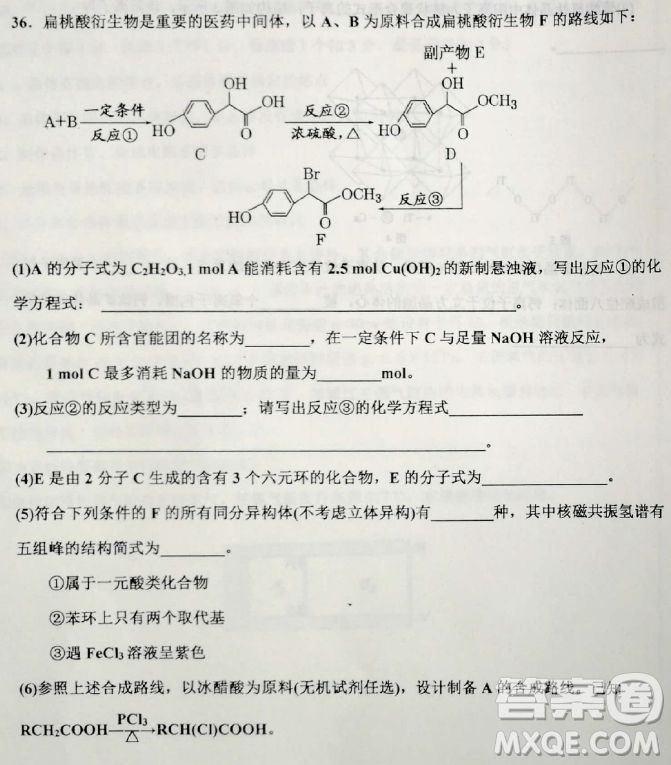 36．扁桃酸衍生物是重要的医药中间体，以 A、B 为原料合成扁桃酸衍生物 F 的路线如下：
副产物 E
+
OH
OH
OCH₃
OH
A+B
一定条件
反应①
反应②
浓硫酸，△
HO
O
HO
O
C
D
Br
OCH₃
反应③
HO
O
F
(1)A 的分子式为 C₂H₂O₃,1 mol A 能消耗含有 2.5 mol Cu(OH)₂的新制悬浊液，写出反应①的化
学方程式：
(2)化合物 C 所含官能团的名称为________，在一定条件下 C 与足量 NaOH 溶液反应，
1 mol C 最多消耗 NaOH 的物质的量为________mol。
(3)反应②的反应类型为________；请写出反应③的化学方程式
。
(4)E 是由 2 分子 C 生成的含有 3 个六元环的化合物，E 的分子式为________。
(5)符合下列条件的 F 的所有同分异构体(不考虑立体异构)有________种，其中核磁共振氢谱有
五组峰的结构简式为________。
①属于一元酸类化合物
②苯环上只有两个取代基
③遇 FeCl₃ 溶液呈紫色
(6)参照上述合成路线，以冰醋酸为原料(无机试剂任选)，设计制备 A 的合成路线。已知
RCH₂COOH
PCl₃
△
RCH(Cl)COOH。
作业帮
MXQE.COM